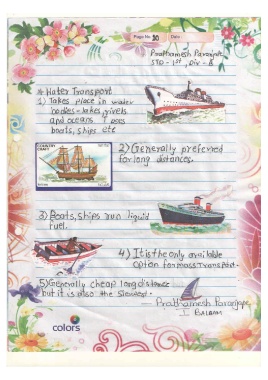 Page No. 30 Date:
Prathamesh Paranjape
STD - 1st, Div - B
* Water Transport
1) Takes place in water
bodies - lakes, rivers
and oceans. It uses
boats, ships etc
COUNTRY CRAFT
2) Generally preferred
for long distances.
3) Boats, ships run liquid
fuel.
4) It is the only available
option for mass Transport.
5) Generally cheap long distance
but it is also the slowest.
— Prathamesh Paranjape
I Balaram
colors